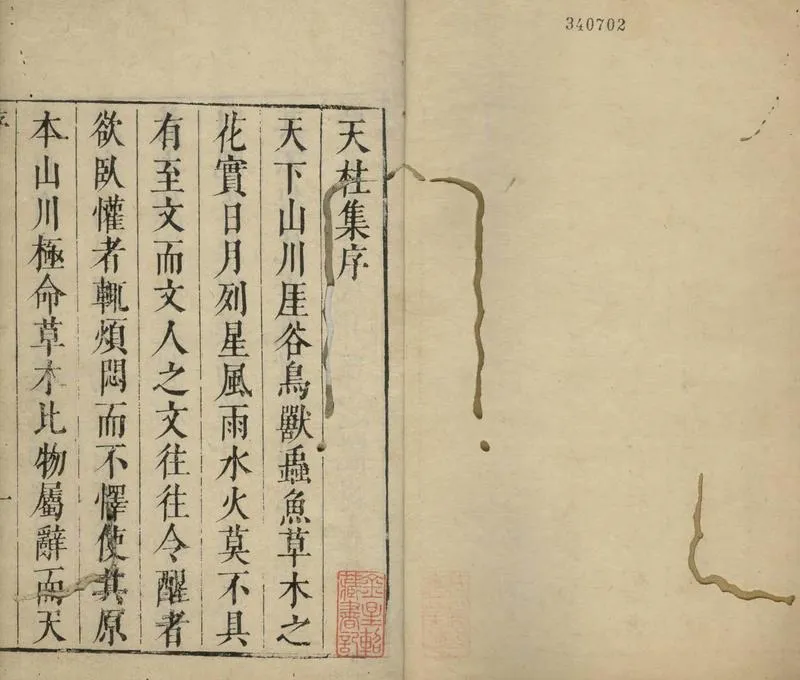 340702
天柱集序
天下山川厓谷鳥獸蟲魚草木之
花實日月列星風雨水火莫不具
有至文而文人之文往往令醒者
欲臥懽者輒煩悶而不懌使其原
本山川極命草木比物屬辭而天
序
一